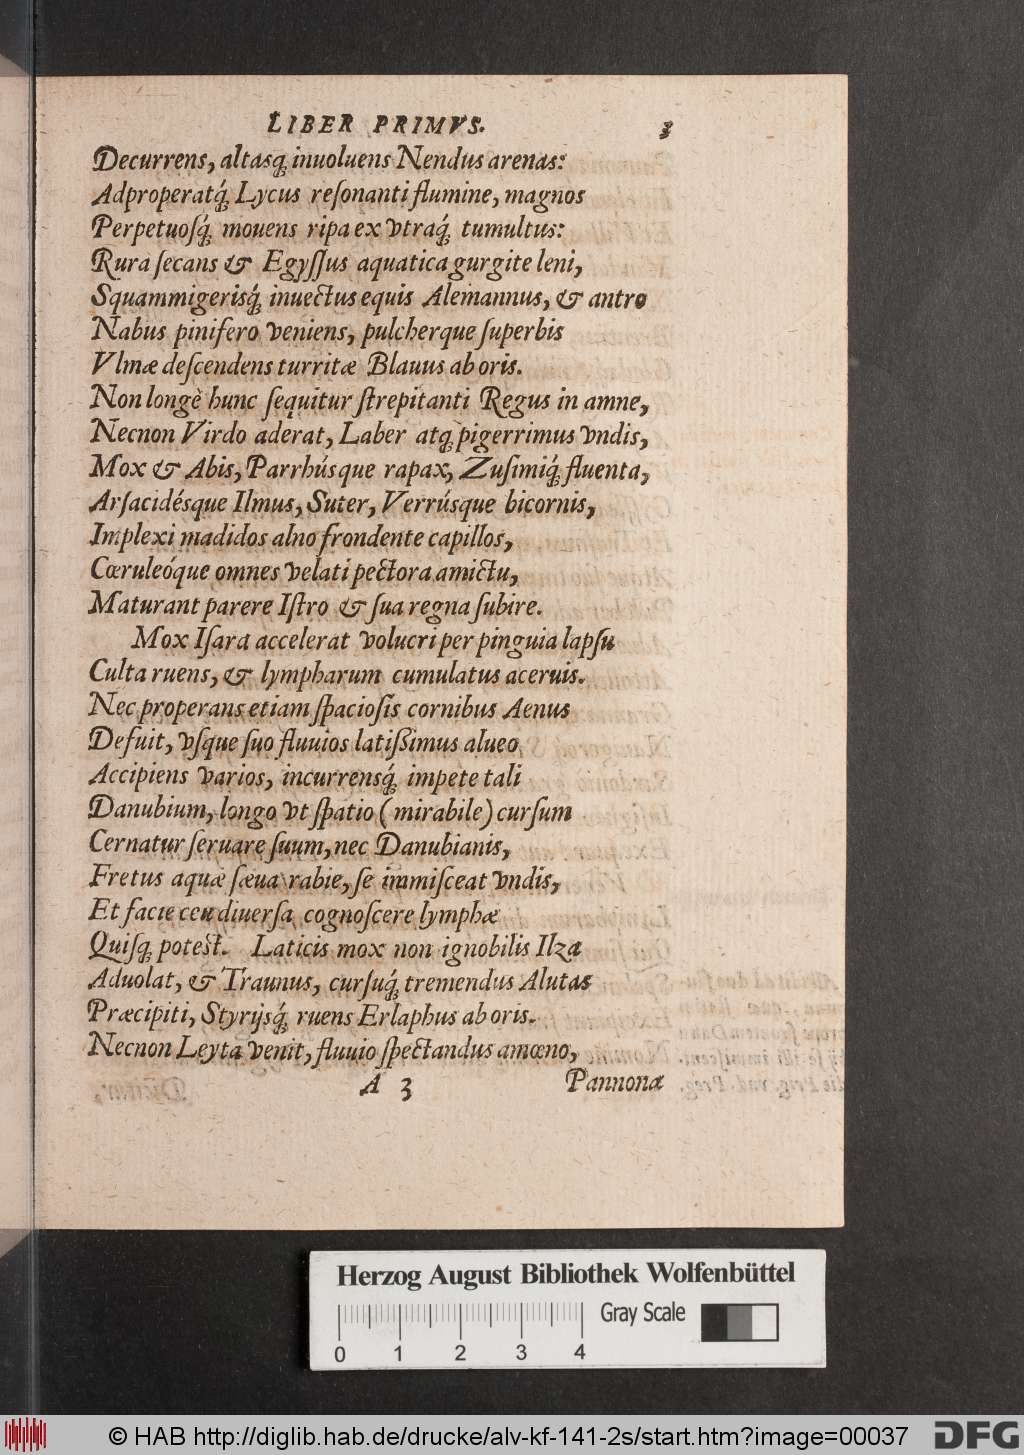 LIBER PRIMVS. 3
Decurrens, altasq́; inuoluens Nendus arenas:
Adproperatq́; Lycus reſonanti flumine, magnos
Perpetuoſq́; mouens ripa ex vtraq́; tumultus:
Rura ſecans & Egyſſus aquatica gurgite leni,
Squammigerisq́; inuectus equis Alemannus, & antro
Nabus pinifero veniens, pulcherque ſuperbis
Vlmæ deſcendens turritæ Blauus ab oris.
Non longè hunc ſequitur ſtrepitanti Regus in amne,
Necnon Virdo aderat, Laber atq; pigerrimus vndis,
Mox & Abis, Parrhúsque rapax, Zuſimiq́; fluenta,
Arſacidésque Ilmus, Suter, Verrúsque bicornis,
Implexi madidos alno frondente capillos,
Cœruleóque omnes velati pectora amictu,
Maturant parere Iſtro & ſua regna ſubire.
Mox Iſara accelerat volucri per pinguia lapſu
Culta ruens, & lympharum cumulatus aceruis.
Nec properans etiam ſpacioſis cornibus Aenus
Defuit, vſque ſuo fluuios latiſſimus alueo
Accipiens varios, incurrensq́; impete tali
Danubium, longo vt ſpatio (mirabile) curſum
Cernatur ſeruare ſuum, nec Danubianis,
Fretus aquæ ſæua rabie, ſe immiſceat vndis,
Et facie ceu diuerſa cognoſcere lymphæ
Quiſq; poteſt. Laticis mox non ignobilis Ilza
Aduolat, & Traunus, curſuq́; tremendus Alutas
Præcipiti, Styrijsq́; ruens Erlaphus ab oris.
Necnon Leyta venit, fluuio ſpectandus amœno,
A 3 Pannonæ
Herzog August Bibliothek Wolfenbüttel
Gray Scale
0 1 2 3 4
© HAB http://diglib.hab.de/drucke/alv-kf-141-2s/start.htm?image=00037
DFG